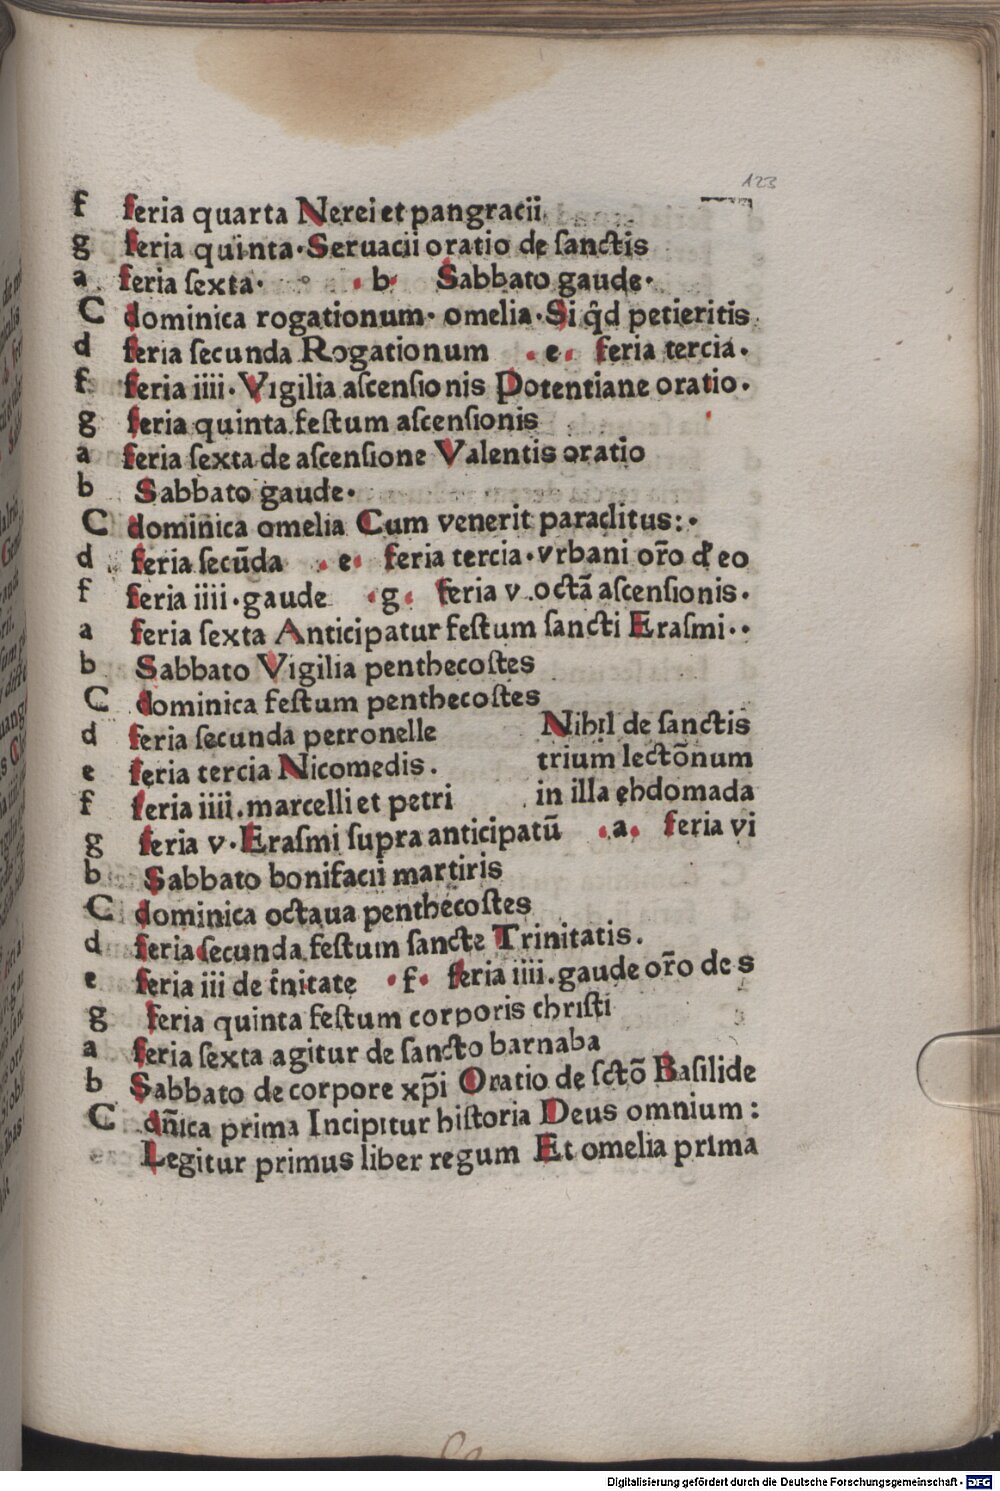 123
f feria quarta Nerei et pangracii
g feria quinta·Seruacii oratio de ſanctis
a feria ſexta· · b· Sabbato gaude·
C dominica rogationum· omelia·Si q̄d petieritis
d feria ſecunda Rogationum · e · feria tercia·
f feria iiii·Vigilia aſcenſionis Potentiane oratio·
g feria quinta feſtum aſcenſionis
a feria ſexta de aſcenſione Valentis oratio
b Sabbato gaude·
C dominica omelia Cum venerit paraclitus:·
d feria ſecūda · e· feria tercia·vrbani or̄o de eo
f feria iiii·gaude ·g· feria v.octā aſcenſionis·
a feria ſexta Anticipatur feſtum ſancti Eraſmi··
b Sabbato Vigilia penthecoſtes
C dominica feſtum penthecoſtes
d feria ſecunda petronelle Nihil de ſanctis
e feria tercia Nicomedis. trium lectōnum
f feria iiii.marcelli et petri in illa ebdomada
g feria v·Eraſmi ſupra anticipatū ·a· feria vi
b Sabbato bonifacii martiris
C dominica octaua penthecoſtes
d feria ſecunda feſtum ſancte Trinitatis.
e feria iii de t̄nitate ·f· feria iiii.gaude or̄o de s
g feria quinta feſtum corporis chriſti
a feria ſexta agitur de ſancto barnaba
b Sabbato de corpore xp̄i Oratio de ſctō Baſilide
C dn̄ica prima Incipitur hiſtoria Deus omnium:
Legitur primus liber regum Et omelia prima
Digitalisierung gefördert durch die Deutsche Forschungsgemeinschaft · DFG